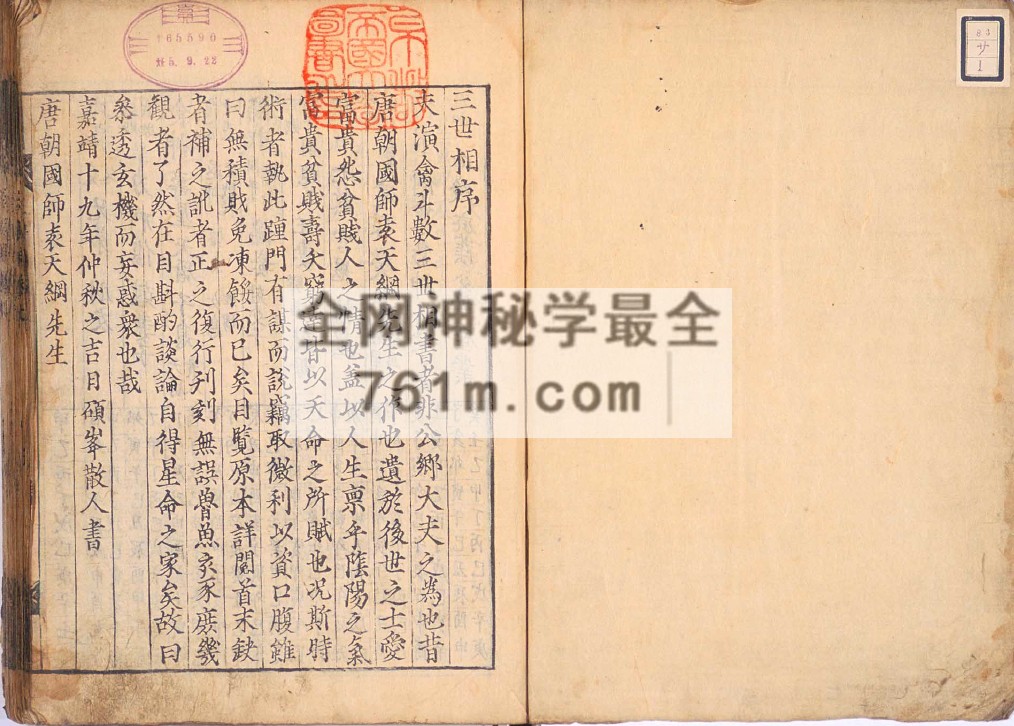 三世相序
夫演禽斗數三世相書者非公鄉大夫之為也昔
唐朝國師袁天綱先生之作也遺於後世之士愛
富貴怨貧賤人之情也盖以人生禀乎陰陽之氣
富貴貧賤壽夭窮皆以天命之所賦也况斯時
術者執此踵門有謀而說竊取微利以資口腹雖
曰無積賎免凍餒而已矣目覧原本詳閱首末缺
者補之訛者正之復行刋刻無誤魯魚亥豕庶幾
觀者了然在目斟酌談論自得星命之家矣故曰
叅透玄機而妄惑衆也哉
嘉靖十九年仲秋之吉目碩峯散人書
唐朝國師袁天綱先生
165590
5.9.28
全网神秘学最全
761m.com
サ
1